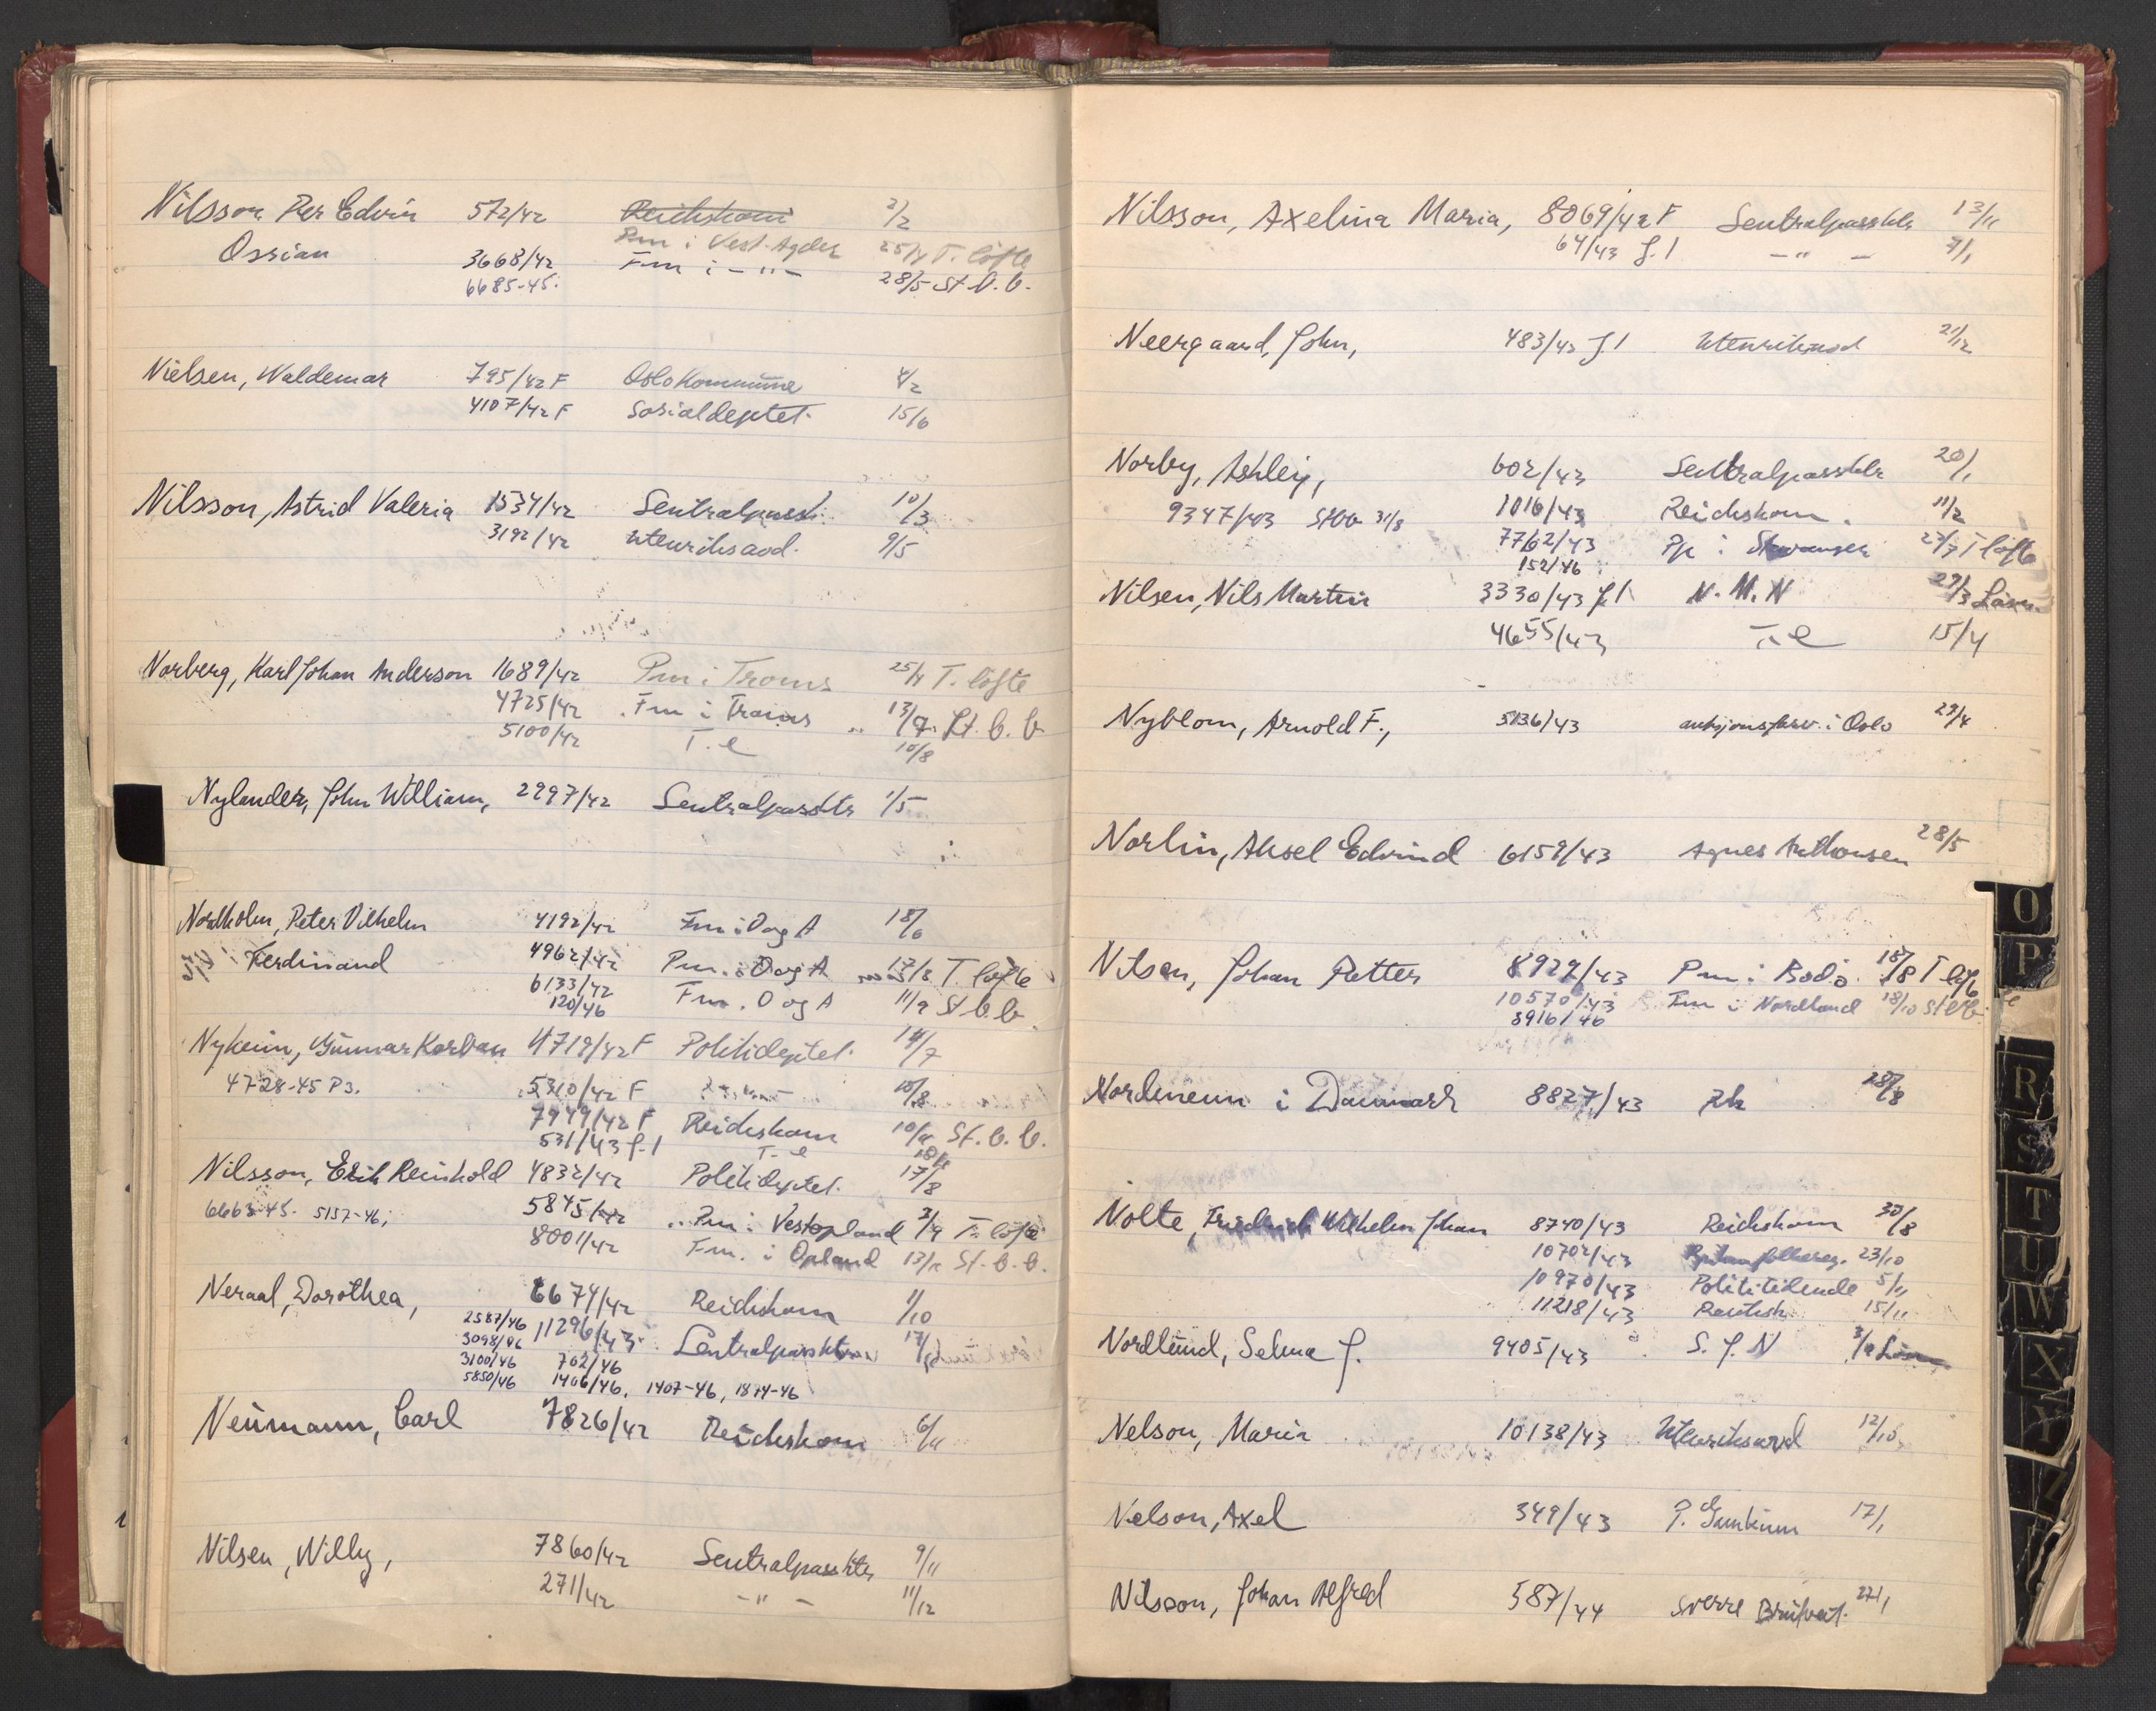 Nilsson Per Edvin 572/42 Reichskom 2/2
Ossian Pm i Vest-Agder 25/4 T. löfte
3668/42 Fm i - " - 28/5 St. b. b.
6685-45.
Nielsen, Waldemar 795/42 F Oslo Kommune 4/2
4107/42 F Sosialdeptet. 15/6
Nilsson, Astrid Valeria 1534/42 Sentralpassk. 10/3
3192/42 Utenriksavd. 9/5
Norberg, Karl Johan Anderson 1689/42 Pm i Troms 25/4 T. löfte
4725/42 Fm i Troms 13/7. St. b. b.
5100/42 T. e 10/8
Nylander, John William, 2997/42 Sentralpassktr 1/5
Nordholm, Peter Vilhelm 4192/42 Fm i O og A 18/6
Ferdinand 4962/42 Pm. i O og A 17/8 T. löfte
6133/42 Fm. O og A 11/9 St b. b.
120/46
Nykeim, Gunnar Korban 4719/42 F Politideptet. 14/7
4728-45 P3. 5310/42 F 10/8
7949/42 F Reichskom 10/11 St. b. b.
531/43 f.1 T. e
Nilsson, Erik Reinhold 4832/42 Politideptet. 17/8
6663-45. 5157-46, 5845/42 Pm i Vestopland 2/9 T. löfte
8001/42 Fm. i Opland 13/11 St. b. b.
Neraal, Dorothea, 6674/42 Reichskom 1/10
2587/46 11296/43 Sentralpassktr
3098/46
3100/46 702/46
5850/46 1406/46, 1407-46, 1874-46
Neumann, Carl 7826/42 Reichskom 6/11
Nilsen, Willy, 7860/42 Sentralpassktr 9/11
271/42 - " - 11/12
Nilsson, Axelina Maria, 8069/42 F Sentralpassktr 13/11
64/43 f.1 - " - 4/1
Neergaard, John, 483/43 f.1 Utenriksavd 21/12
Norby, Ashley, 602/43 Sentralpassktr 20/1
9347/43 Stbb 31/8 1016/43 Reichskom. 11/2
7762/43 Pp i Stavanger 27/7 T löfte
152/46
Nilsen, Nils Martin 3330/43 f.1 N. M. N 29/3
4655/43 T. e 15/4
Nyblom, Arnold F., 5136/43 auksjonsforv. i Oslo 29/4
Norlin, Aksel Edvind 6159/43 Agnes Anthonsen 28/5
Nilsen, Johan Petter 8929/43 Pm i Bodö. 18/8 T löfte
10570/43 Fm i Nordland 18/10 Stbb
8916/46
Nordmenn i Danmark 8827/43 28/8
Nolte, Friedrich Wilhelm Johan 8740/43 Reichskom 30/8
10702/43 23/10
10970/43 Polititidende 5/11
11218/43 15/11
Nordlund, Selma J. 9405/43 S. J. N
Nelson, Maria 10138/43 Utenriksavd 12/10
Nelson, Axel 349/43 17/1
Nilsson, Johan Alfred 587/44 Sverre 27/1
O
P
R
S
T
U
W
X
Y